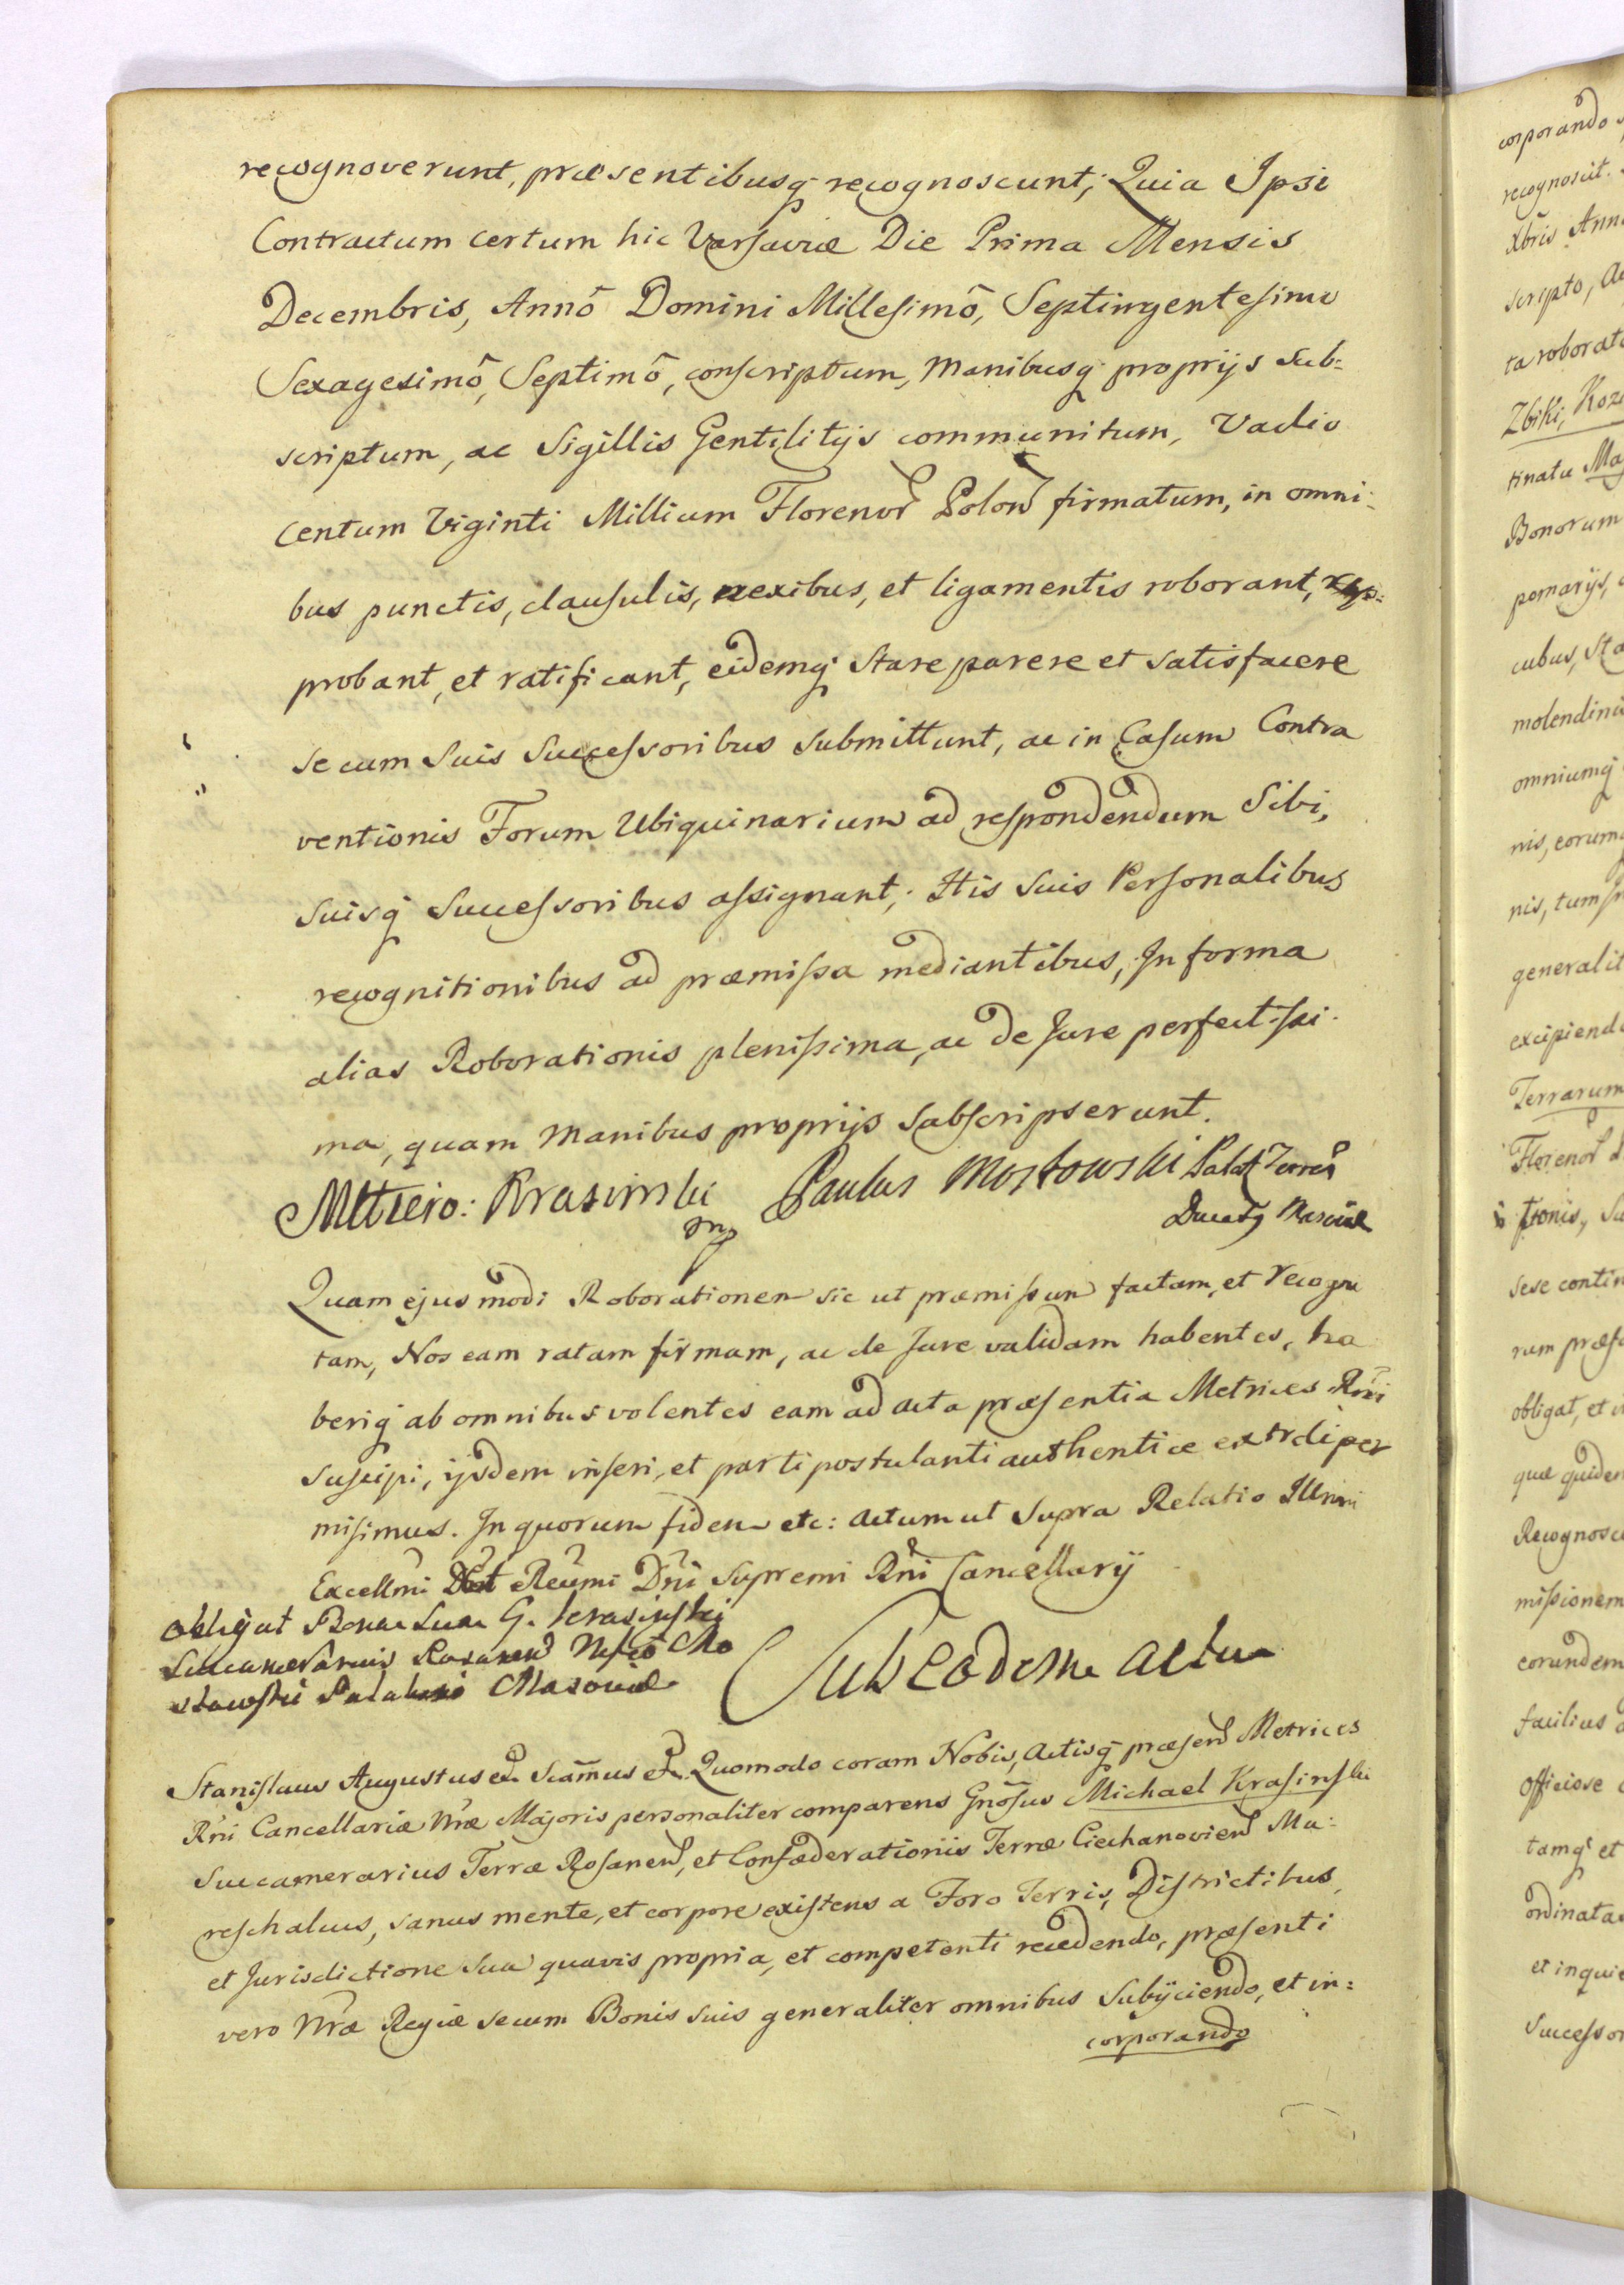 recognoverunt, præsentibusq recognoscunt; Quia Ipsi
Contractum certum hic Varsaviæ Die Prima Mensis
Decembris, Annô Domini Millesimô, Septingentesimo
Sexagesimô, Septimô, conscriptum, Manibusq proprijs Sub=
scriptum, ac Sigillis Gentilitijs communitum, Vadio
Centum Viginti Millium Florenor Polon firmatum, in omni=
bus punctis, clausulis, nexibus, et ligamentis roborant,
probant, et ratificant, eidemq stare parere et satisfacere
se cum Suis Successoribus submittunt, ac in Casum Contra
ventionis Forum Ubiquinarium ad respondendum Sibi,
Suisq Successoribus assignant; His Suis Personalibus
recognitionibus ad præmissa mediantibus, In forma
alias Roborationis plenissima, ac de Jure perfectissi-
ma, quam Manibus proprijs Subscripserunt.
Krasinski Paulus Mostowski Palat Terrar
mp Ducatq Masoviæ
Quam ejusmodi Roborationem sic ut præmissum factam, et recogni
tam, Nos eam ratam firmam, ac de Jure validam habentes, ha
beriq ab omnibus volentes eam ad acta præsentia Metrices Rni
suscipi, ijsdem inseri, et parti postulanti authentice extradi per
misimus. In quorum fidem etc: Actum ut Supra Relatio Illmi
Excellmi et Reumi Dni Supremi Rni Cancellarij
Obligat Bona Sua G. Krasinski
Succamerarius Rosanen Mo
stowski Palatino Masoviæ
Sub eodem actu
Stanislaus Augustus etc Scamus etc. Quomodo coram Nobis, Actisq præsen Metrices
Rni Cancellariæ Nræ Majoris personaliter comparens Gnosus Michael Krasinski
Succamerarius Terræ Rosanen, et Confæderationis Terræ Ciechanovien Ma=
reschalcus, sanus mente, et corpore existens a Foro Terris, Districtibus,
et Jurisdictione Sua quavis propria, et competenti recedendo, præsenti
vero Nræ Regiæ secum Bonis suis generaliter omnibus Subijciendo, et in=
corporando
corporando
recognoscit.
Xbris Ann
scripto, ac
ta roborat
Zbiki, Koz
tinatu Ma
Bonorum
pomarijs,
cubus, Sta
molendini
omniumq
nis, eorum
nis, tum
generalit
excipiend
Terrarum
Florenor
tionis, Su
sese contin
rum præs
obligat, et
quæ quidem
Recognosc
missionem
corundem
facilius
Officiose
tamq et
ordinata
et inquie
Successor